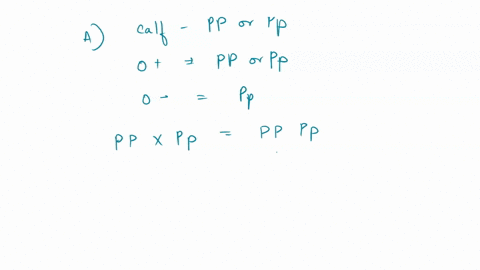 A) calf - PP or Pp
O + → PP or Pp
O - = Pp
PP x Pp = PP Pp